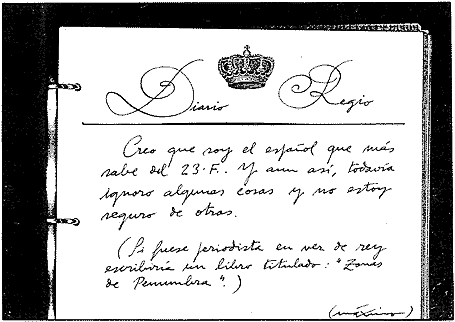 Diario Regio
Creo que soy el español que más
sabe del 23-F.. Y aun así, todavía
ignoro algunas cosas y no estoy
seguro de otras.
(Si fuese periodista en vez de rey
escribiría un libro titulado: "Zonas
de Penumbra".)
(máximo)